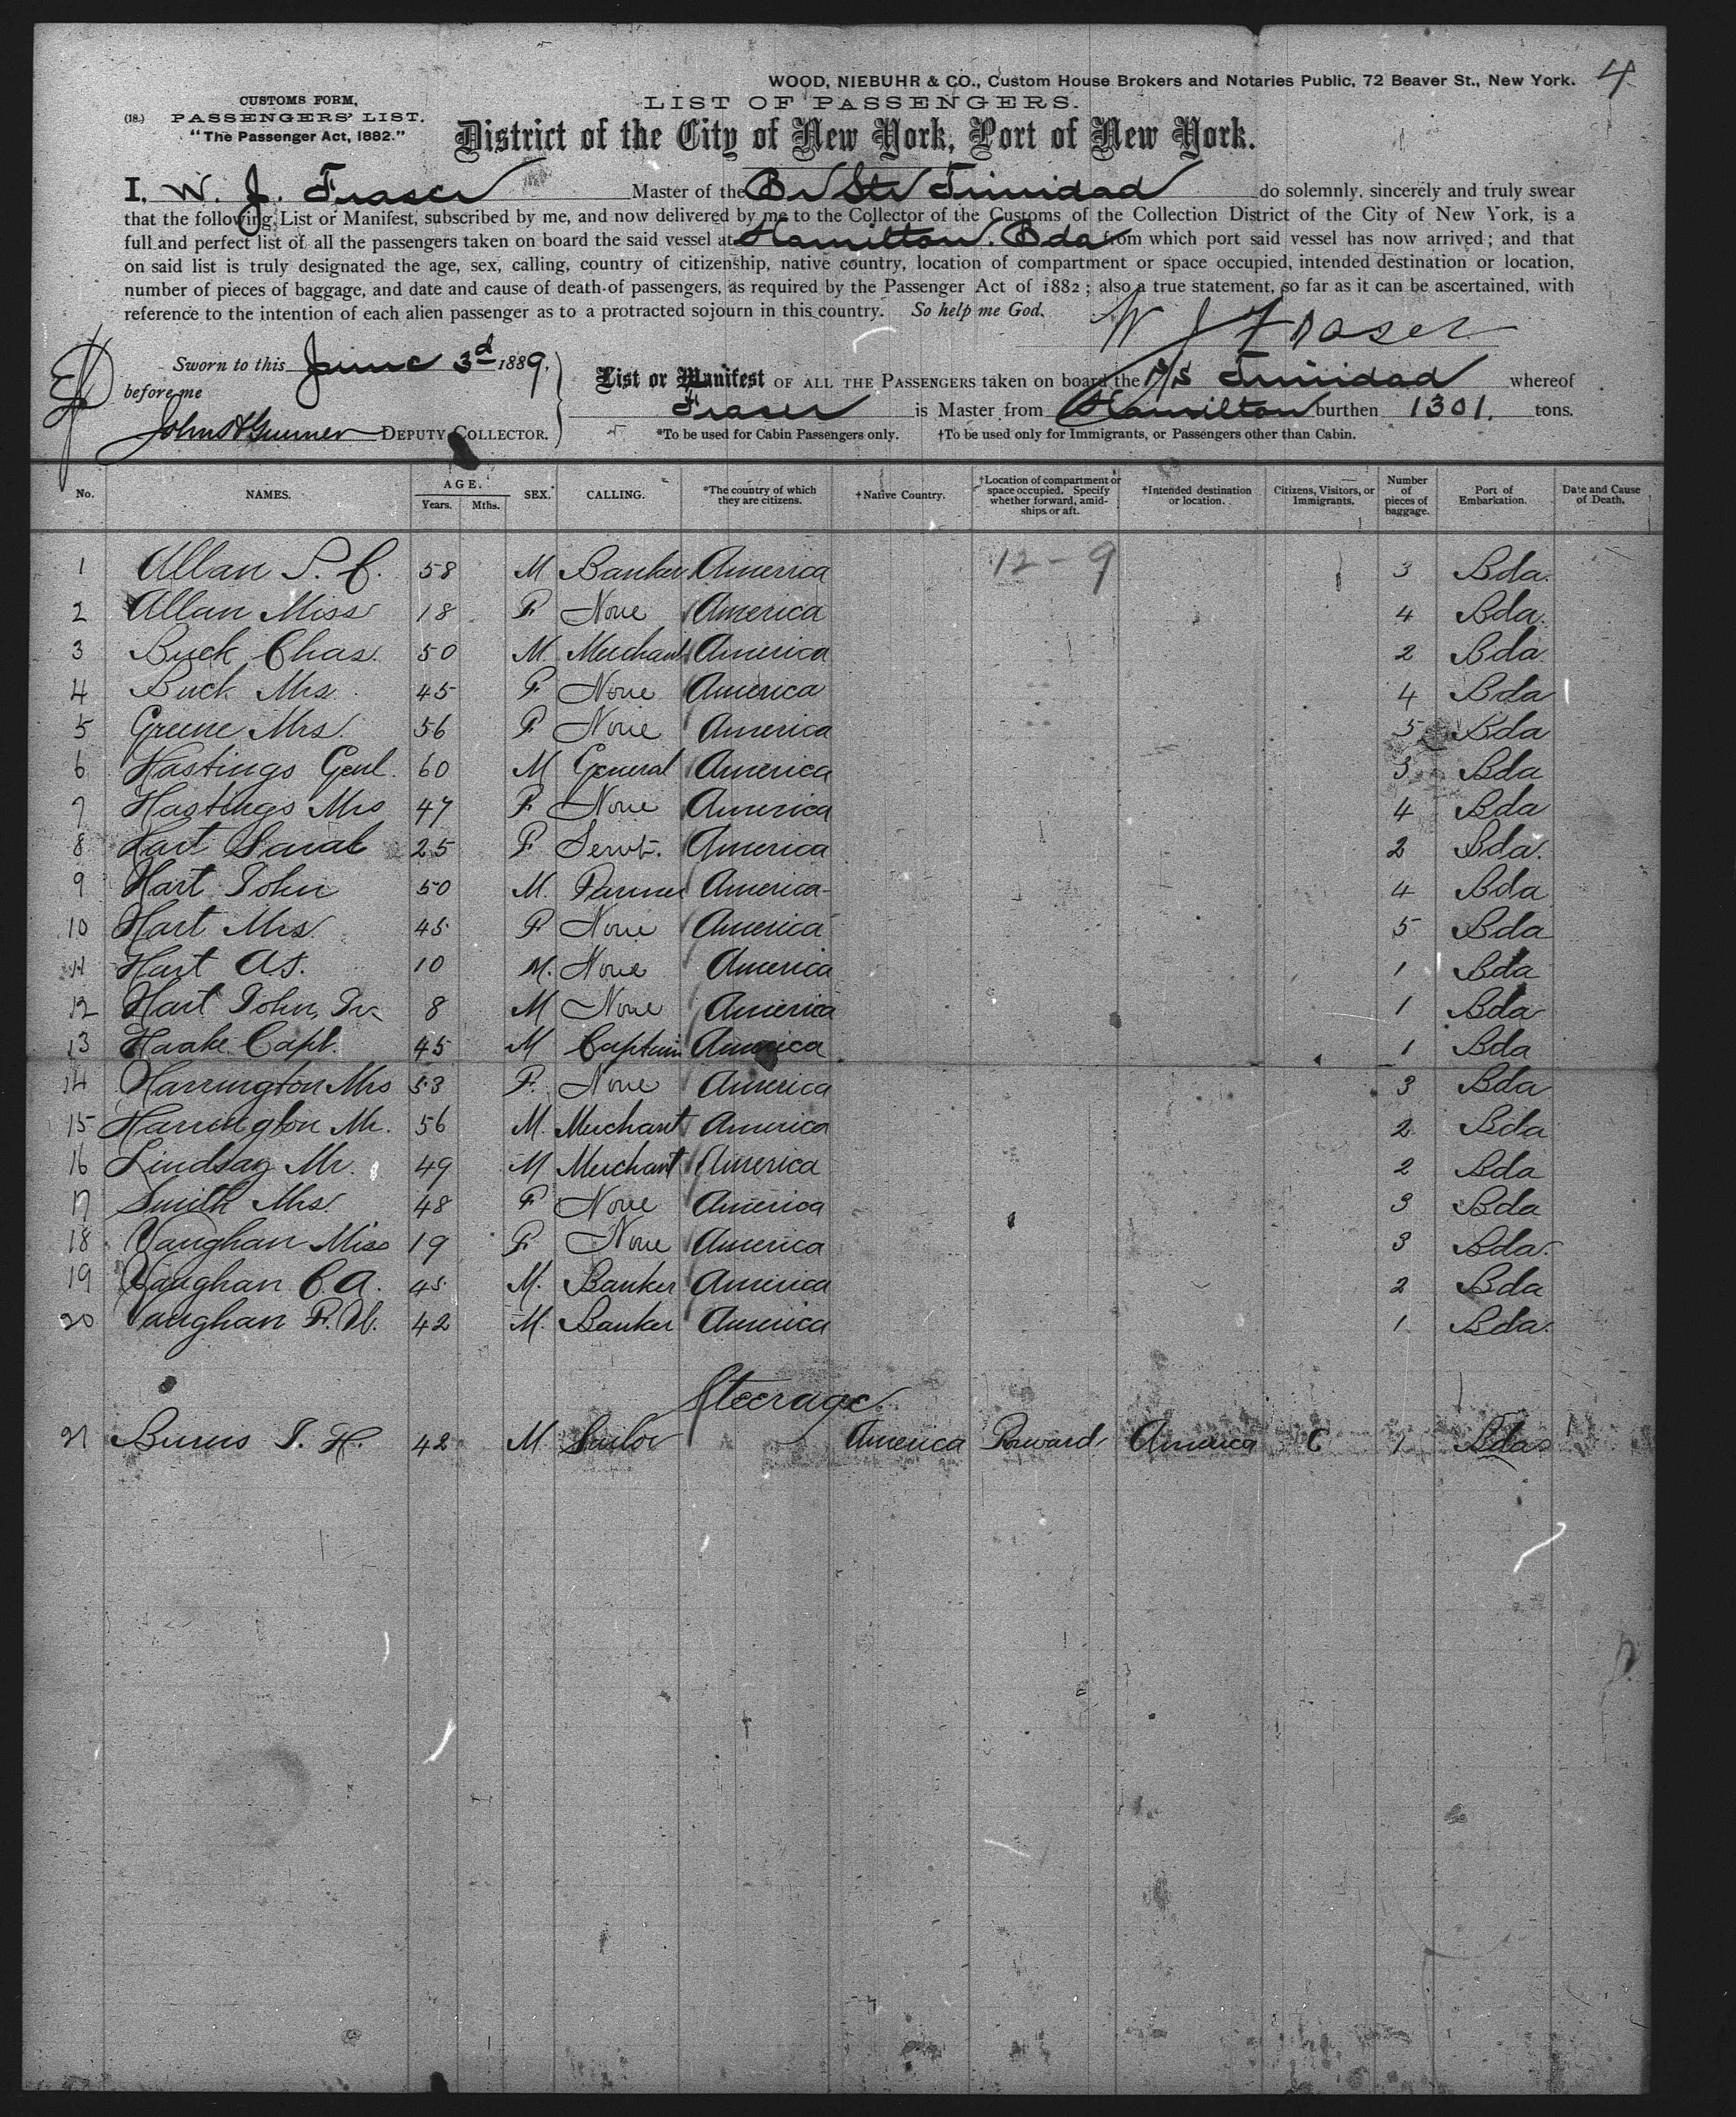 4
WOOD, NIEBUHR & CO., Custom House Brokers and Notaries Public, 72 Beaver St., New York.
CUSTOMS FORM,
(18.) PASSENGERS' LIST.
"The Passenger Act, 1882."
LIST OF PASSENGERS.
District of the City of New York, Port of New York.
I, W. J. Fraser Master of the Br Str Trinidad do solemnly, sincerely and truly swear
that the following List or Manifest, subscribed by me, and now delivered by me to the Collector of the Customs of the Collection District of the City of New York, is a
full and perfect list of all the passengers taken on board the said vessel at Hamilton. Bda from which port said vessel has now arrived; and that
on said list is truly designated the age, sex, calling, country of citizenship, native country, location of compartment or space occupied, intended destination or location,
number of pieces of baggage, and date and cause of death of passengers, as required by the Passenger Act of 1882; also a true statement, so far as it can be ascertained, with
reference to the intention of each alien passenger as to a protracted sojourn in this country. So help me God.
W J Fraser
Sworn to this June 3d 1889,
before me
DEPUTY COLLECTOR.
List or Manifest OF ALL THE PASSENGERS taken on board the S/S Trinidad whereof
Fraser is Master from Hamilton burthen 1301. tons.
*To be used for Cabin Passengers only. †To be used only for Immigrants, or Passengers other than Cabin.
No. NAMES. AGE. Years. Mths. SEX. CALLING. *The country of which they are citizens. †Native Country. †Location of compartment or space occupied. Specify whether forward, amidships or aft. †Intended destination or location. Citizens, Visitors, or Immigrants. Number of pieces of baggage. Port of Embarkation. Date and Cause of Death.
12 - 9
1 Allan S. C. 58 M Banker America 3 Bda.
2 Allan Miss 18 F. None America 4 Bda.
3 Buck Chas. 50 M. Merchant America 2 Bda.
4 Buck Mrs. 45 F. None America 4 Bda
5 Greene Mrs. 56 F None America 5 Bda
6 Hastings Genl. 60 M General America 3 Bda
7 Hastings Mrs 47 F. None America 4 Bda
8 Hart Sarah 25 F Servt. America 2 Bda.
9 Hart John 50 M. Farmer America 4 Bda
10 Hart Mrs. 45 F None America 5 Bda
11 Hart As. 10 M. None America 1 Bda
12 Hart John, Jr. 8 M None America 1 Bda
13 Haake Capt. 45 M Captain America 1 Bda
14 Harrington Mrs 53 F. None America 3 Bda
15 Harrington Mr. 56 M. Merchant America 2 Bda
16 Lindsay Mr. 49 M Merchant America 2 Bda
17 Smith Mrs. 48 F. None America 3 Bda
18 Vaughan Miss 19 F. None America 3 Bda.
19 Vaughan C. A. 45 M. Banker America 2 Bda
20 Vaughan F. W. 42 M. Banker America 1 Bda.
Steerage
21 Burns J. H. 42 M Sailor America Forward America C 1 Bda